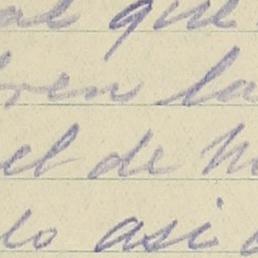 al que
ren la
el de h
lo asi